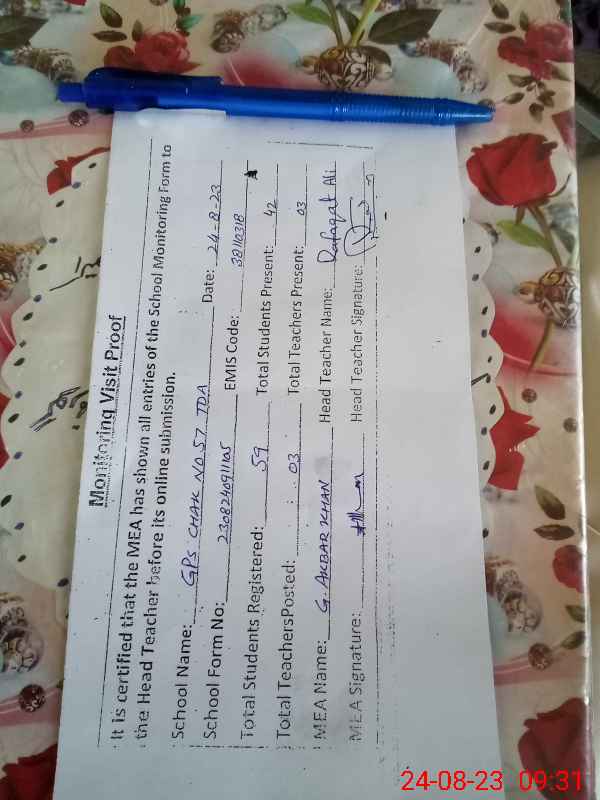 Monitoring Visit Proof
It is certified that the MEA has shown all entries of the School Monitoring Form to
the Head Teacher before its online submission.
School Name: GPS CHAK NO.57 TDA Date: 24-8-23
School Form No: 2308240911105 EMIS Code: 38110318
Total Students Registered: 59 Total Students Present: 42
Total TeachersPosted: 03 Total Teachers Present: 03
MEA Name: G. AKBAR KHAN Head Teacher Name: Rafaqat Ali
MEA Signature: Head Teacher Signature:
24-08-23 09:31